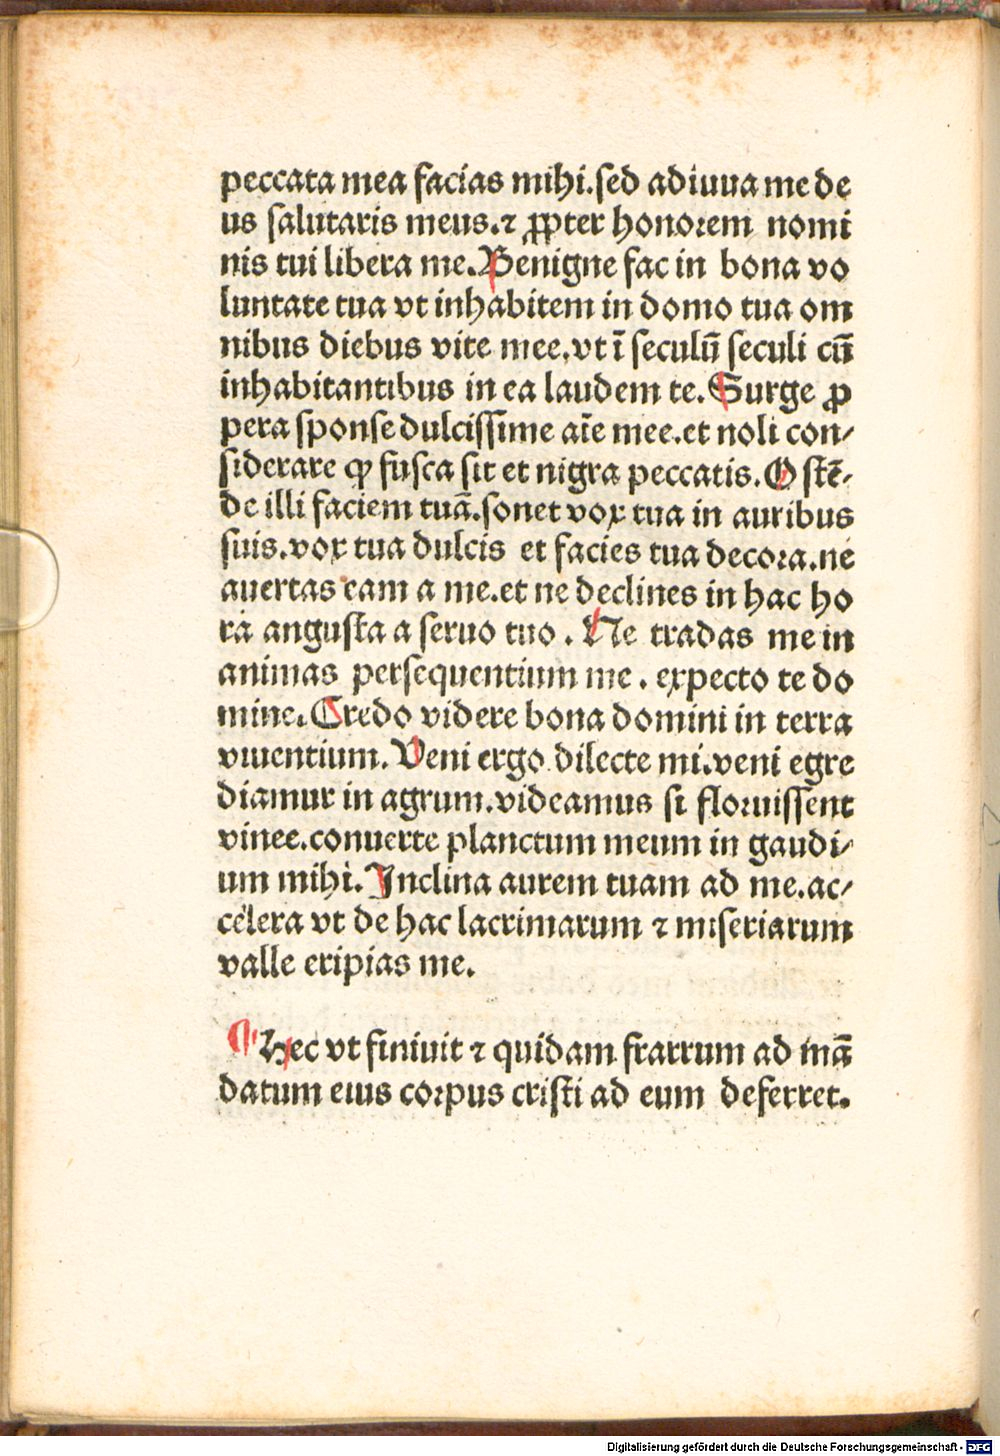 peccata mea facias mihi.sed adiuua me de
us salutaris meus.⁊ ꝓpter honoꝛem nomi
nis tui libera me.Benigne fac in bona vo
luntate tua vt inhabitem in domo tua om
nibus diebus vite mee.vt ī seculū seculi cū
inhabitantibus in ea laudem te.Surge ꝓ
pera sponse dulcissime aīe mee.et noli con⸗
siderare ꝙ fusca sit et nigra peccatis.Ostē⸗
de illi faciem tuā.sonet vox tua in auribus
suis.vox tua dulcis et facies tua decoꝛa.ne
auertas eam a me.et ne declines in hac ho
ra angusta a seruo tuo. Ne tradas me in
animas persequentium me. expecto te do
mine.Credo videre bona domini in terra
viuentium.Veni ergo dilecte mi.veni egre
diamur in agrum.videamus si floꝛuissent
vinee.conuerte planctum meum in gaudi⸗
um mihi.Inclina aurem tuam ad me.ac⸗
celera vt de hac lacrimarum ⁊ miseriarum
valle eripias me.
¶ Hec vt finiuit ⁊ quidam fratrum ad mā
datum eius coꝛpus cristi ad eum deferret.
Digitalisierung gefördert durch die Deutsche Forschungsgemeinschaft - DFG